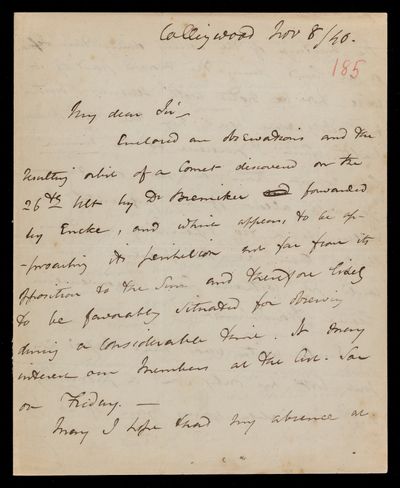 Collingwood Nov 8/40.
185
My dear Sir,
Enclosed are observations and the
resulting orbit of a Comet discovered on the
26th Ult by Dr Bremiker forwarded
by Encke, and which appears to be ap-
-proaching its perihelion and far from its
opposition to the Sun and therefore likely
to be favorably situated for observing
during a considerable time. It may
interest our Members at the Ast. Soc
on Friday. —
May I hope that my absence at